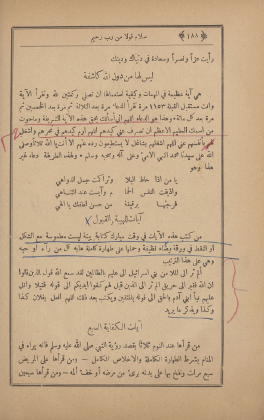 سلام قولا من رب رحيم
﴿ ١٨٨ ﴾
رأيت عزاً ونصراً وسعادة في دنياك ودينك
ليس لها من دون الله كاشفة
هي آية عظيمة في المهمات وكيفية استعمالها ان تصلي ركعتين لله وتقرأ الآية
وانت مستقبل القبلة ١١٥٣ مرة تقرأ الدعاء مرة بعد الثلاثة ثم مرة بعد الخمسين ثم
مرة بعد كل مائة وهذا هو الدعاء اللهم اني أسألك بحق هذه الآية الشريفة
من اسمك العظيم الاعظم ان تصرف عني كيدهم اللهم اردد كيدهم في نحرهم واشغل
الله على سيدنا محمد النبي الامي وعلى آله وصحبه وسلم
يا من اذا حاط البلا
وتراكمت جمل الدواهي
وايقنت النفس
م وآيست عند التناهي
فرجتها برقيقة
من حسن لطفك يا الهي
آيات المهيبة والقبول
من كتب هذه الآيات في وقت مبارك كتابة بينة ليست مطموسة مع الشكل
أو النقط في ورقة بيضاء نظيفة وحملها على طهارة كاملة هابه كل من رآه أو أحبه
وهي على هذا الترتيب
ألم تر الى الملا من بني اسرائيل الى عليم بالظالمين لقد سمع الله قول الذين قالوا
ان الله فقير الى الحريق ألم تر الى الذين قيل لهم كفوا أيديكم الى قوله فتيلا واتل
عليهم نبأ ابني آدم بالحق الى قوله المتقين ويكتب بعد ذلك اللهم افعل بفلان كذا
وكذا ويذكر ما يريد
آيات الكفاية السبع
من قرأها عند النوم ثلاثا بقصد رؤية النبي صلى الله عليه وسلم فانه يراه في
المنام بشرط الطهارة الكاملة والاخلاص الكامل – ومن قرأها على المريض
سبع مرات ونفخ بها على بدنه برئ من مرضه أو خفف ألمه – ومن قرأها سبعين